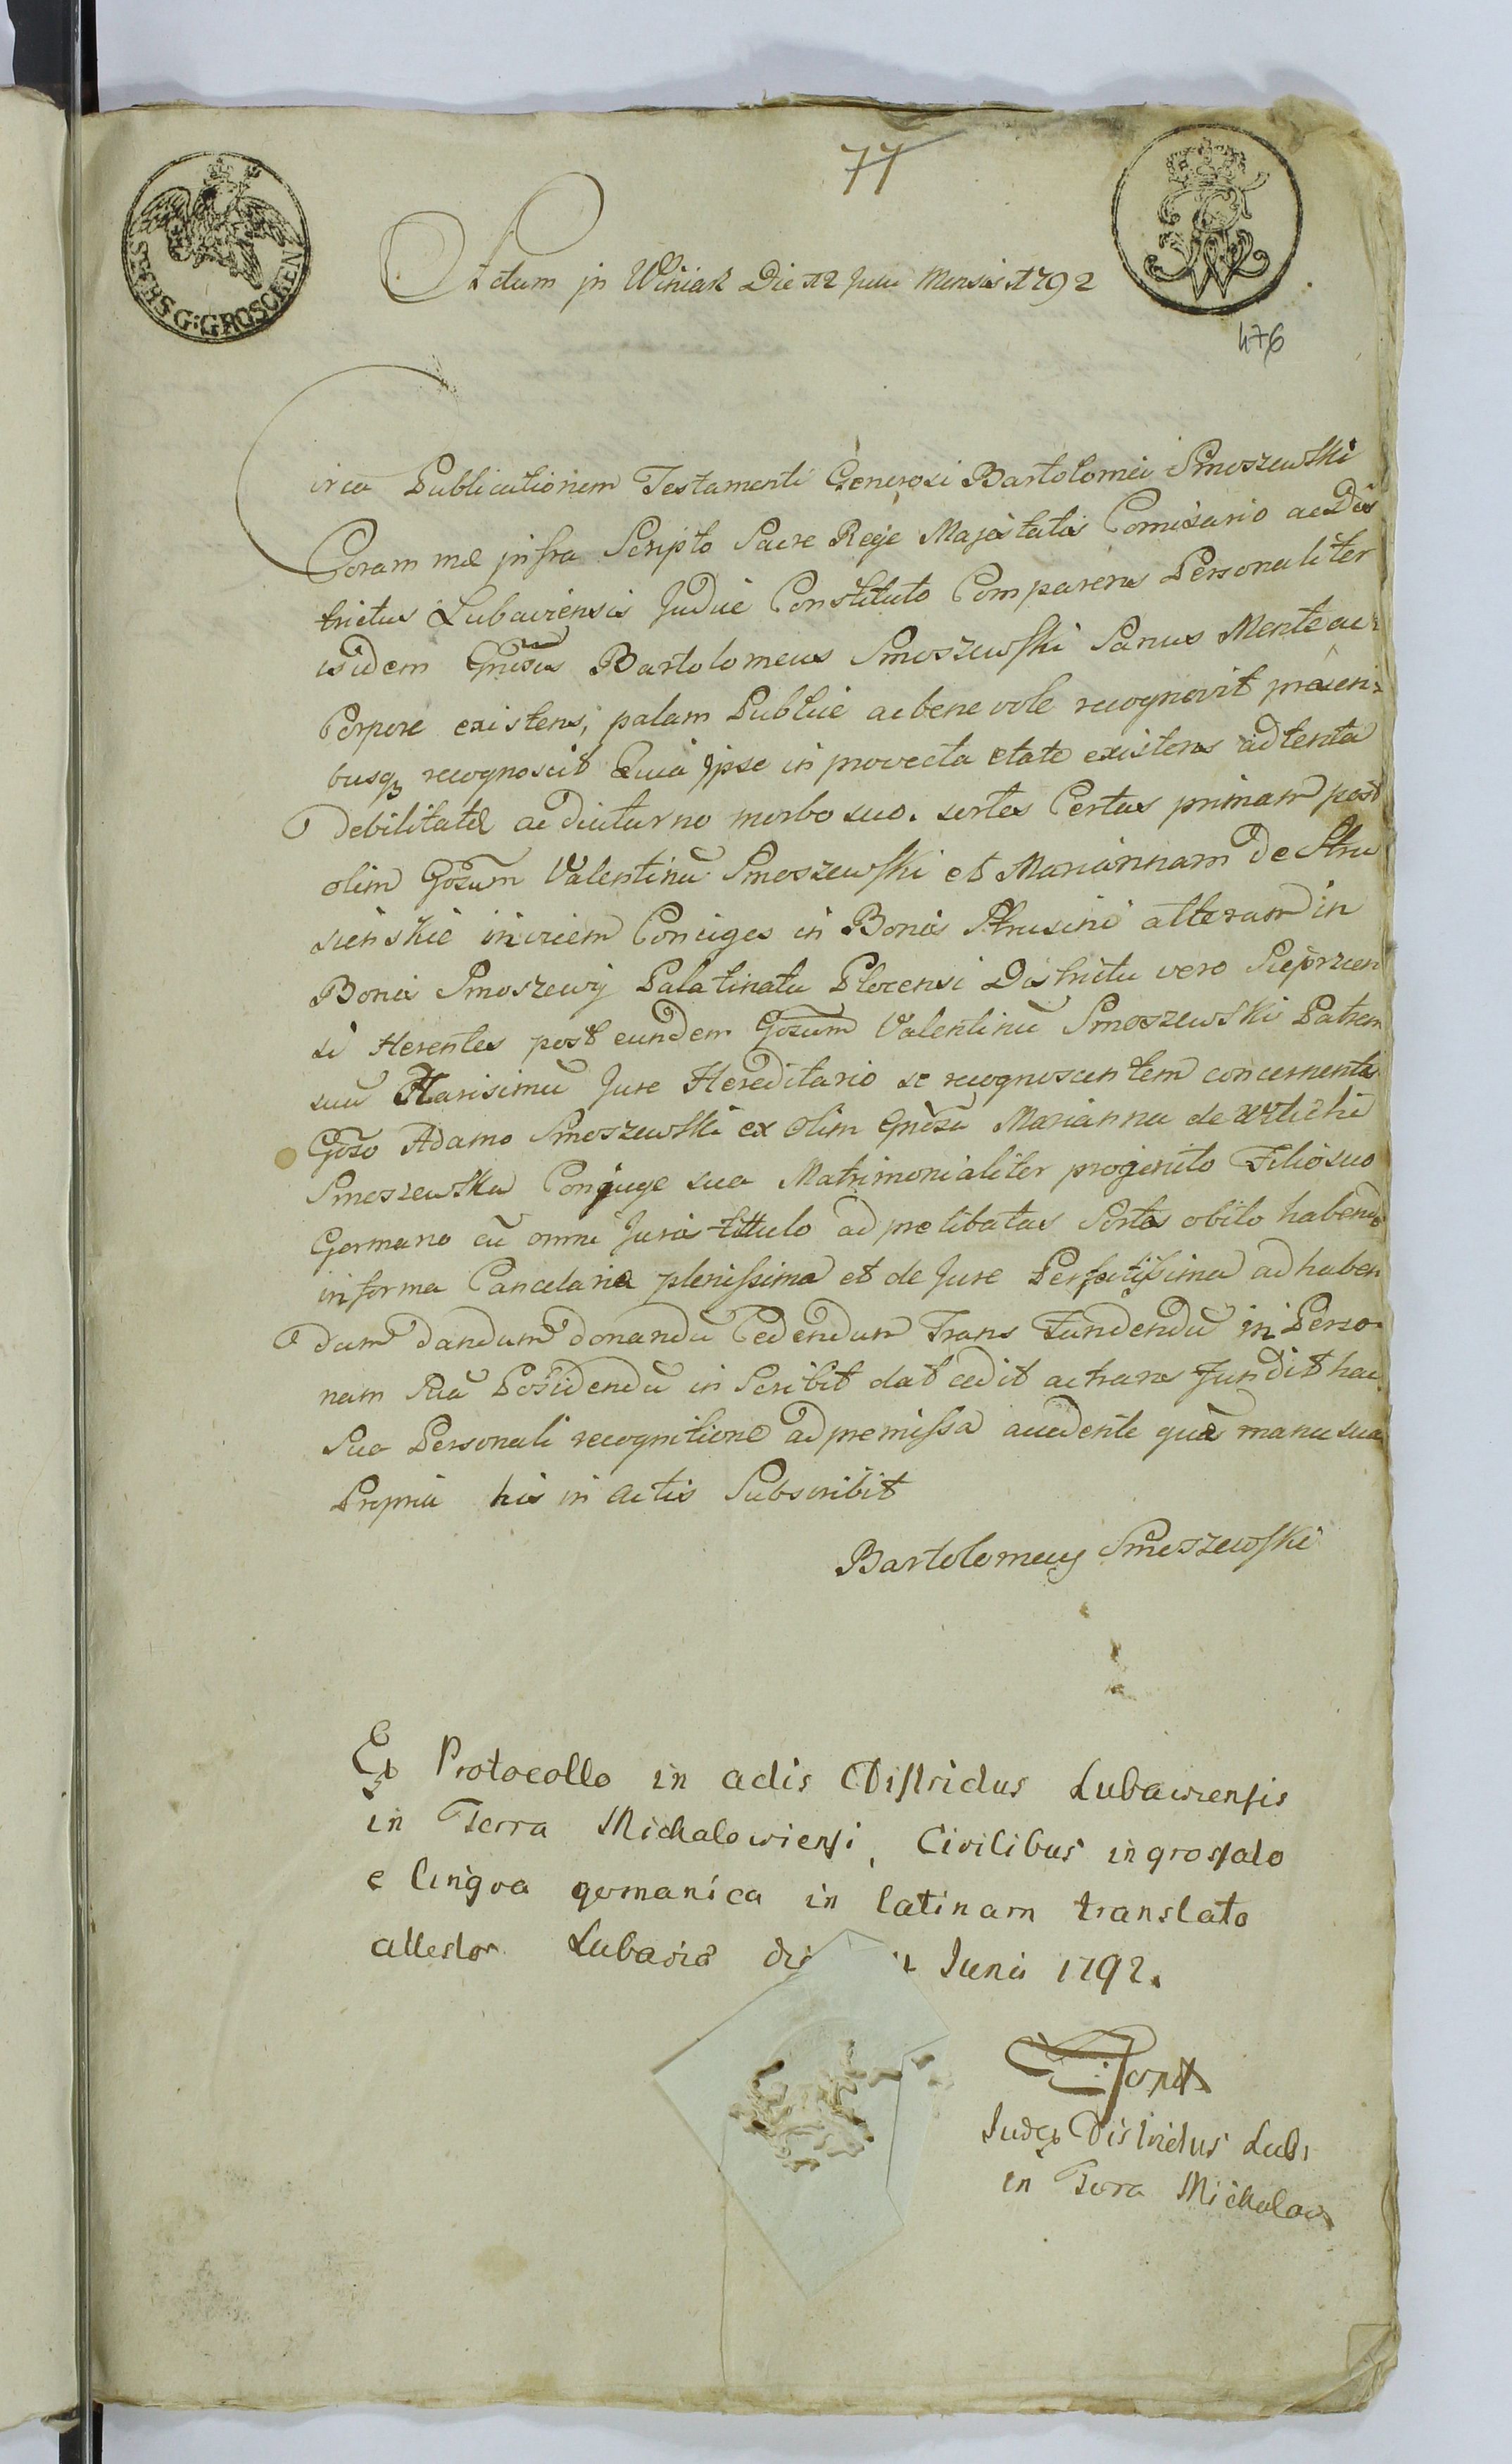 77
SECHS G:GROSCHEN
Actum in Winiak Die 12 Juni Mensis 1792
476
Circa Publicationem Testamenti Generosi Bartolomei Smoszewski
Coram me infra Scripto Sacre Regie Majestatis Comisario ac Dis
trictus Lubaviensis Judice Constituto Comparens Personaliter
isidem Gnēsus Bartolomeus Smoszewski Sanus Mente ac
Corpore existens, palam Publice ac benevole recognovit presen-
busq recognoscit Quia Ipse in provecta etate existens adtenta
debilitate ac diuturno morbo suo. sortes Certas primam post
olim Gōsum Valentinū Smoszewski et Mariannam de Stru
sienskie invicem Coniuges in Bonis Strusino alteram in
Bonis Smoszewy Palatinatu Plocensi Districtu vero Sieprzen
si Herentes post eundem Gōsum Valentinū Smoszewski Patrem
suū Karisimū Jure Hereditario se recognoscentem concernentes
Gōso Adamo Smoszewski ex olim Gnēsa Marianna de
Smoszewska Conjuge sua Matrimonialiter progenito Filio suo
Germano cū omni Juris tittulo ad prelibatas Sortes obito habendo
in forma Cancelarie plenissima et de Jure Perfectissima ad haben
dum dandum donandū Cedendum Trans Fundendū in Perso-
nam Suā Posidendū in Scribit dat cedit ac trans Fundit hac
Sua Personali recognitione ad premissa accedente que manu sua
Propria his in actis Subscribit
Bartolomeus Smoszewski
Ex Protocollo in actis Districtus Lubaviensis
in Terra Michaloviensi, Civilibus ingrossato
e lingva germanica in latinam translato
attestor Lubavia Juni 1792.
Judex Districtus Lub:
in Terra Michalov